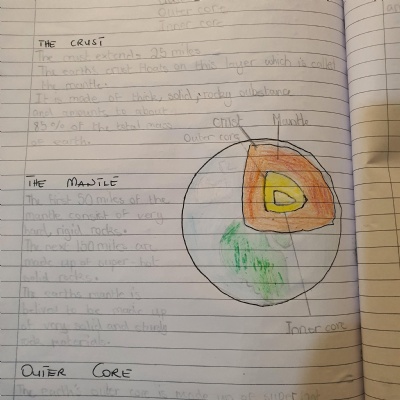 Outer core
Inner core
THE CRUST
The crust extends 25 miles.
The earths crust floats on this layer which is called
the mantle.
It is made of thick, solid, rocky substance
and amounts to about
85% of the total mass
of earth.
crust
Mantle
Outer core
THE MANTLE
The first 50 miles of the
mantle consist of very
hard, rigid rocks.
The next 150 miles are
made up of super-hot
solid rocks.
The earths mantle is
to be made up
of very solid and
materials.
Inner core
OUTER CORE
The earth's outer core is made up of super